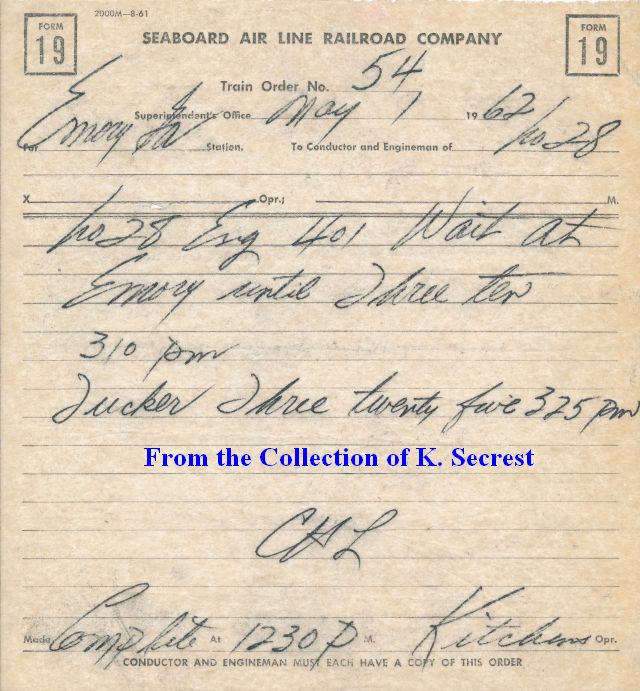 2000M—8-61
FORM 19
SEABOARD AIR LINE RAILROAD COMPANY
FORM 19
Train Order No. 54
Superintendent's Office May 1 1962
For Emory Ga Station. To Conductor and Engineman of No 28
X Opr.; M.
No 28 Eng 401 Wait at
Emory until Three ten
310 pm
Tucker Three twenty five 325 pm
From the Collection of K. Secrest
CHL
Made Complete At 1230 P M. Kitchens Opr.
CONDUCTOR AND ENGINEMAN MUST EACH HAVE A COPY OF THIS ORDER